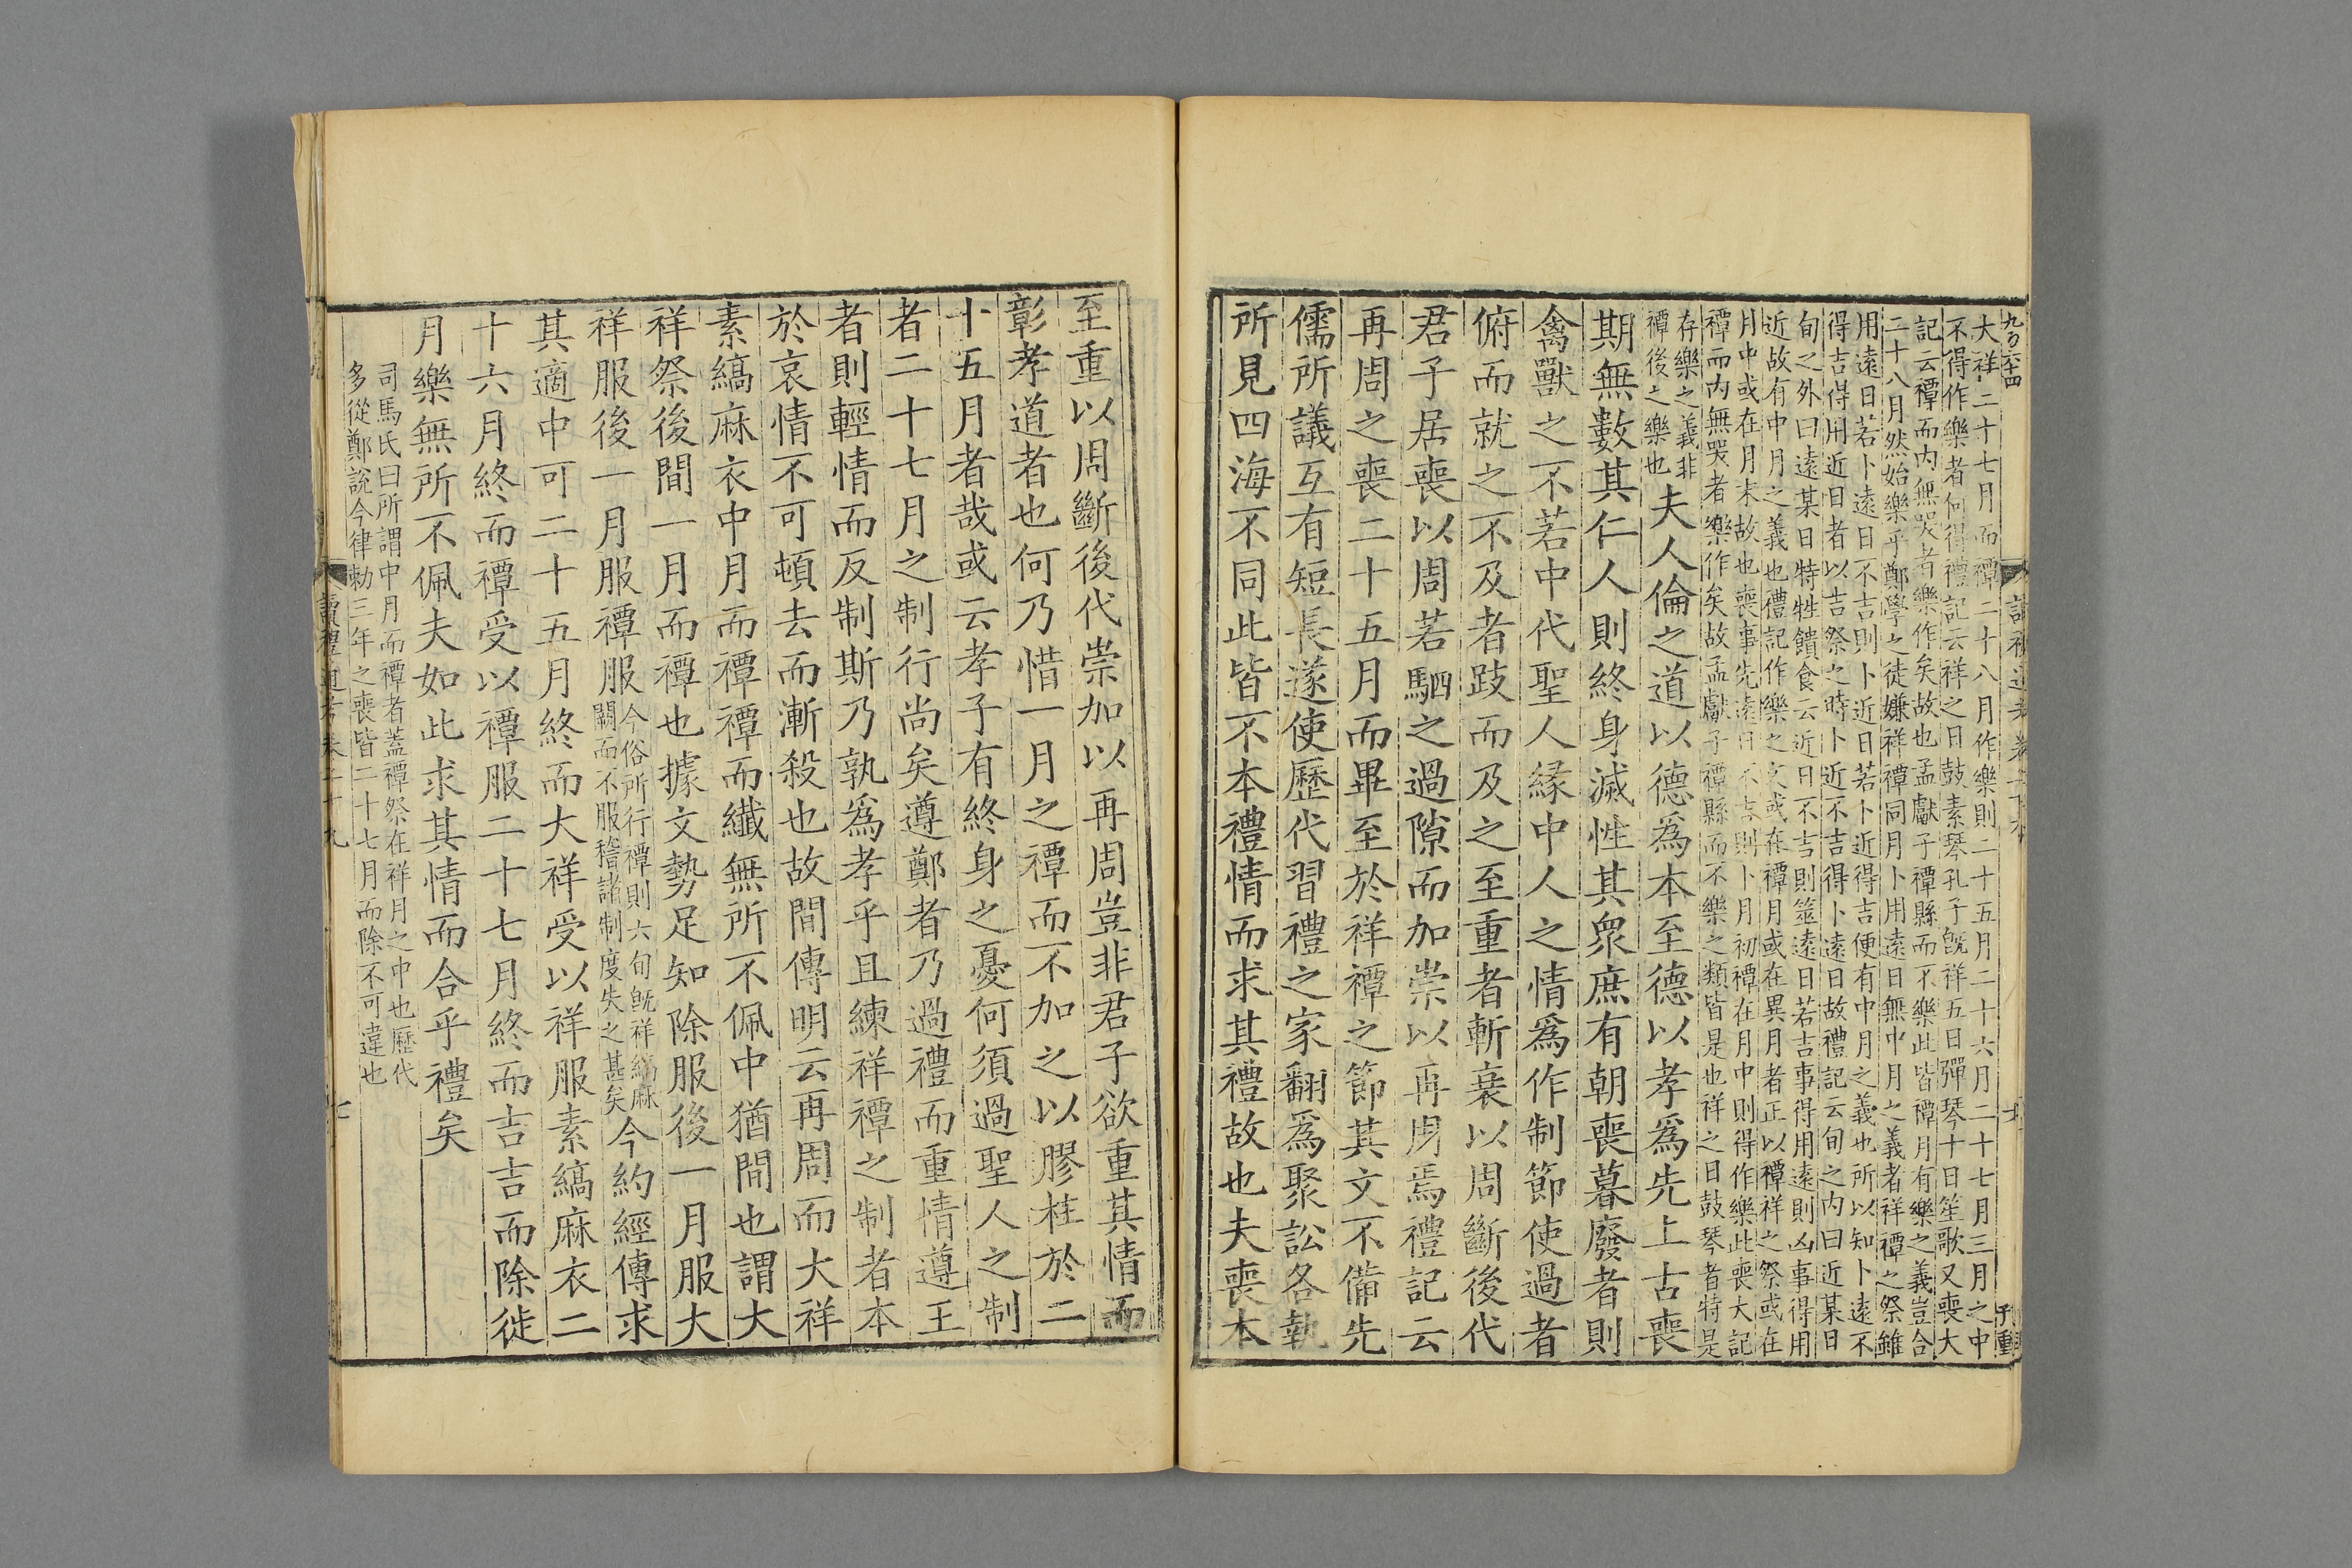 大祥二十七月而禫二十八月作樂則二十五月二十六月二十七月三月之中
不得作樂者何得禮記云祥之日鼓素琴孔子旣祥五日彈琴十日笙歌又喪大
記云禫而內無哭者樂作矣故也孟獻子禫縣而不樂此皆禫月有樂之義豈合
二十八月然始樂乎鄭學之徒嫌祥禫同月卜用遠日無中月之義者祥禫之祭雖
用遠日若卜遠日不吉則卜近日若卜近得吉便有中月之義也所以知卜遠不
得吉得用近日者以吉祭之時卜近不吉得卜遠日故禮記云旬之內曰近某日
旬之外曰遠某日特牲饋食云近日不吉則筮遠日若吉事得用遠則凶事得用
近故有中月之義也禮記作樂之文或在禫月或在異月者正以禫祥之祭或在
月中或在月末故也喪事先遠日不吉則卜月初禫在月中則得作樂此喪大記
禫而內無哭者樂作矣故孟獻子禫縣而不樂之類皆是也祥之日鼓琴者特是
存樂之義非
禫後之樂也
夫人倫之道以德爲本至德以孝爲先上古喪
期無數其仁人則終身滅性其衆庶有朝喪暮廢者則
禽獸之不若中代聖人緣中人之情爲作制節使過者
俯而就之不及者跂而及之至重者斬衰以周斷後代
君子居喪以周若駟之過隙而加崇以再周焉禮記云
再周之喪二十五月而畢至於祥禫之節其文不備先
儒所議互有短長遂使歷代習禮之家翻爲聚訟各執
所見四海不同此皆不本禮情而求其禮故也夫喪本
至重以周斷後代崇加以再周豈非君子欲重其情而
彰孝道者也何乃惜一月之禫而不加之以膠柱於二
十五月者哉或云孝子有終身之憂何須過聖人之制
者二十七月之制行尚矣遵鄭者乃過禮而重情遵王
者則輕情而反制斯乃孰爲孝乎且練祥禫之制者本
於哀情不可頓去而漸殺也故間傳明云再周而大祥
素縞麻衣中月而禫禫而纎無所不佩中猶間也謂大
祥祭後間一月而禫也據文勢足知除服後一月服大
祥服後一月服禫服
今俗所行禫則六旬旣祥縞麻
闕而不服稽諸制度失之甚矣
今約經傳求
其適中可二十五月終而大祥受以祥服素縞麻衣二
十六月終而禫受以禫服二十七月終而吉吉而除徙
月樂無所不佩夫如此求其情而合乎禮矣
司馬氏曰所謂中月而禫者蓋禫祭在祥月之中也歷代
多從鄭說今律勅三年之喪皆二十七月而除不可違也
讀禮通考卷二十九
七